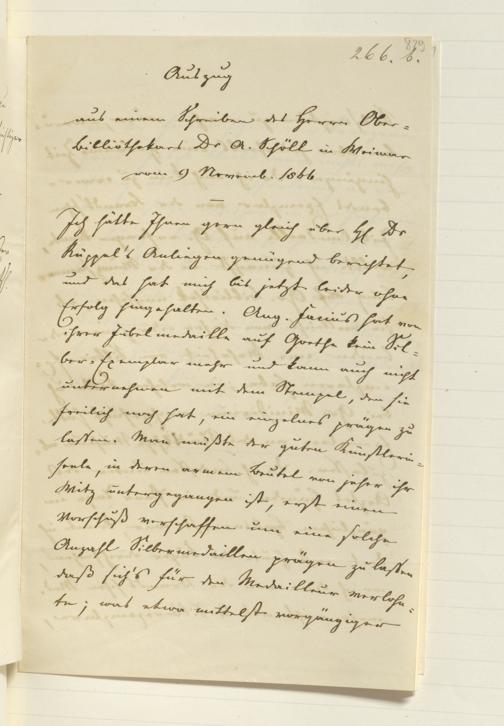 879
266. b.
Auszug
aus einem Schreiben des Herrn Ober-
bibliothekars Dr A. Schöll in Weimar
vom 9 Novemb. 1866
Ich hätte Ihnen gern gleich über H Dr
Rüppel's Anliegen genügend berichtet,
und das hat mich bis jetzt leider ohne
Erfolg hingehalten. Ang. Facius hat von
ihrer Jubelmedaille auf Goethe kein Sil-
ber-Exemplar mehr und kann auch nicht
unternehmen mit dem Stempel, den sie
freilich noch hat, ein einzelnes prägen zu
lassen. Man müßte der guten Künstlerin-
seele, in deren armem Beutel von jeher ihr
Witz untergegangen ist, erst einen
Vorschuß verschaffen um eine solche
Anzahl Silbermedaillen prägen zu lassen
daß sich's für den Medailleur verlohn-
te; was etwa mittelst vorgängiger